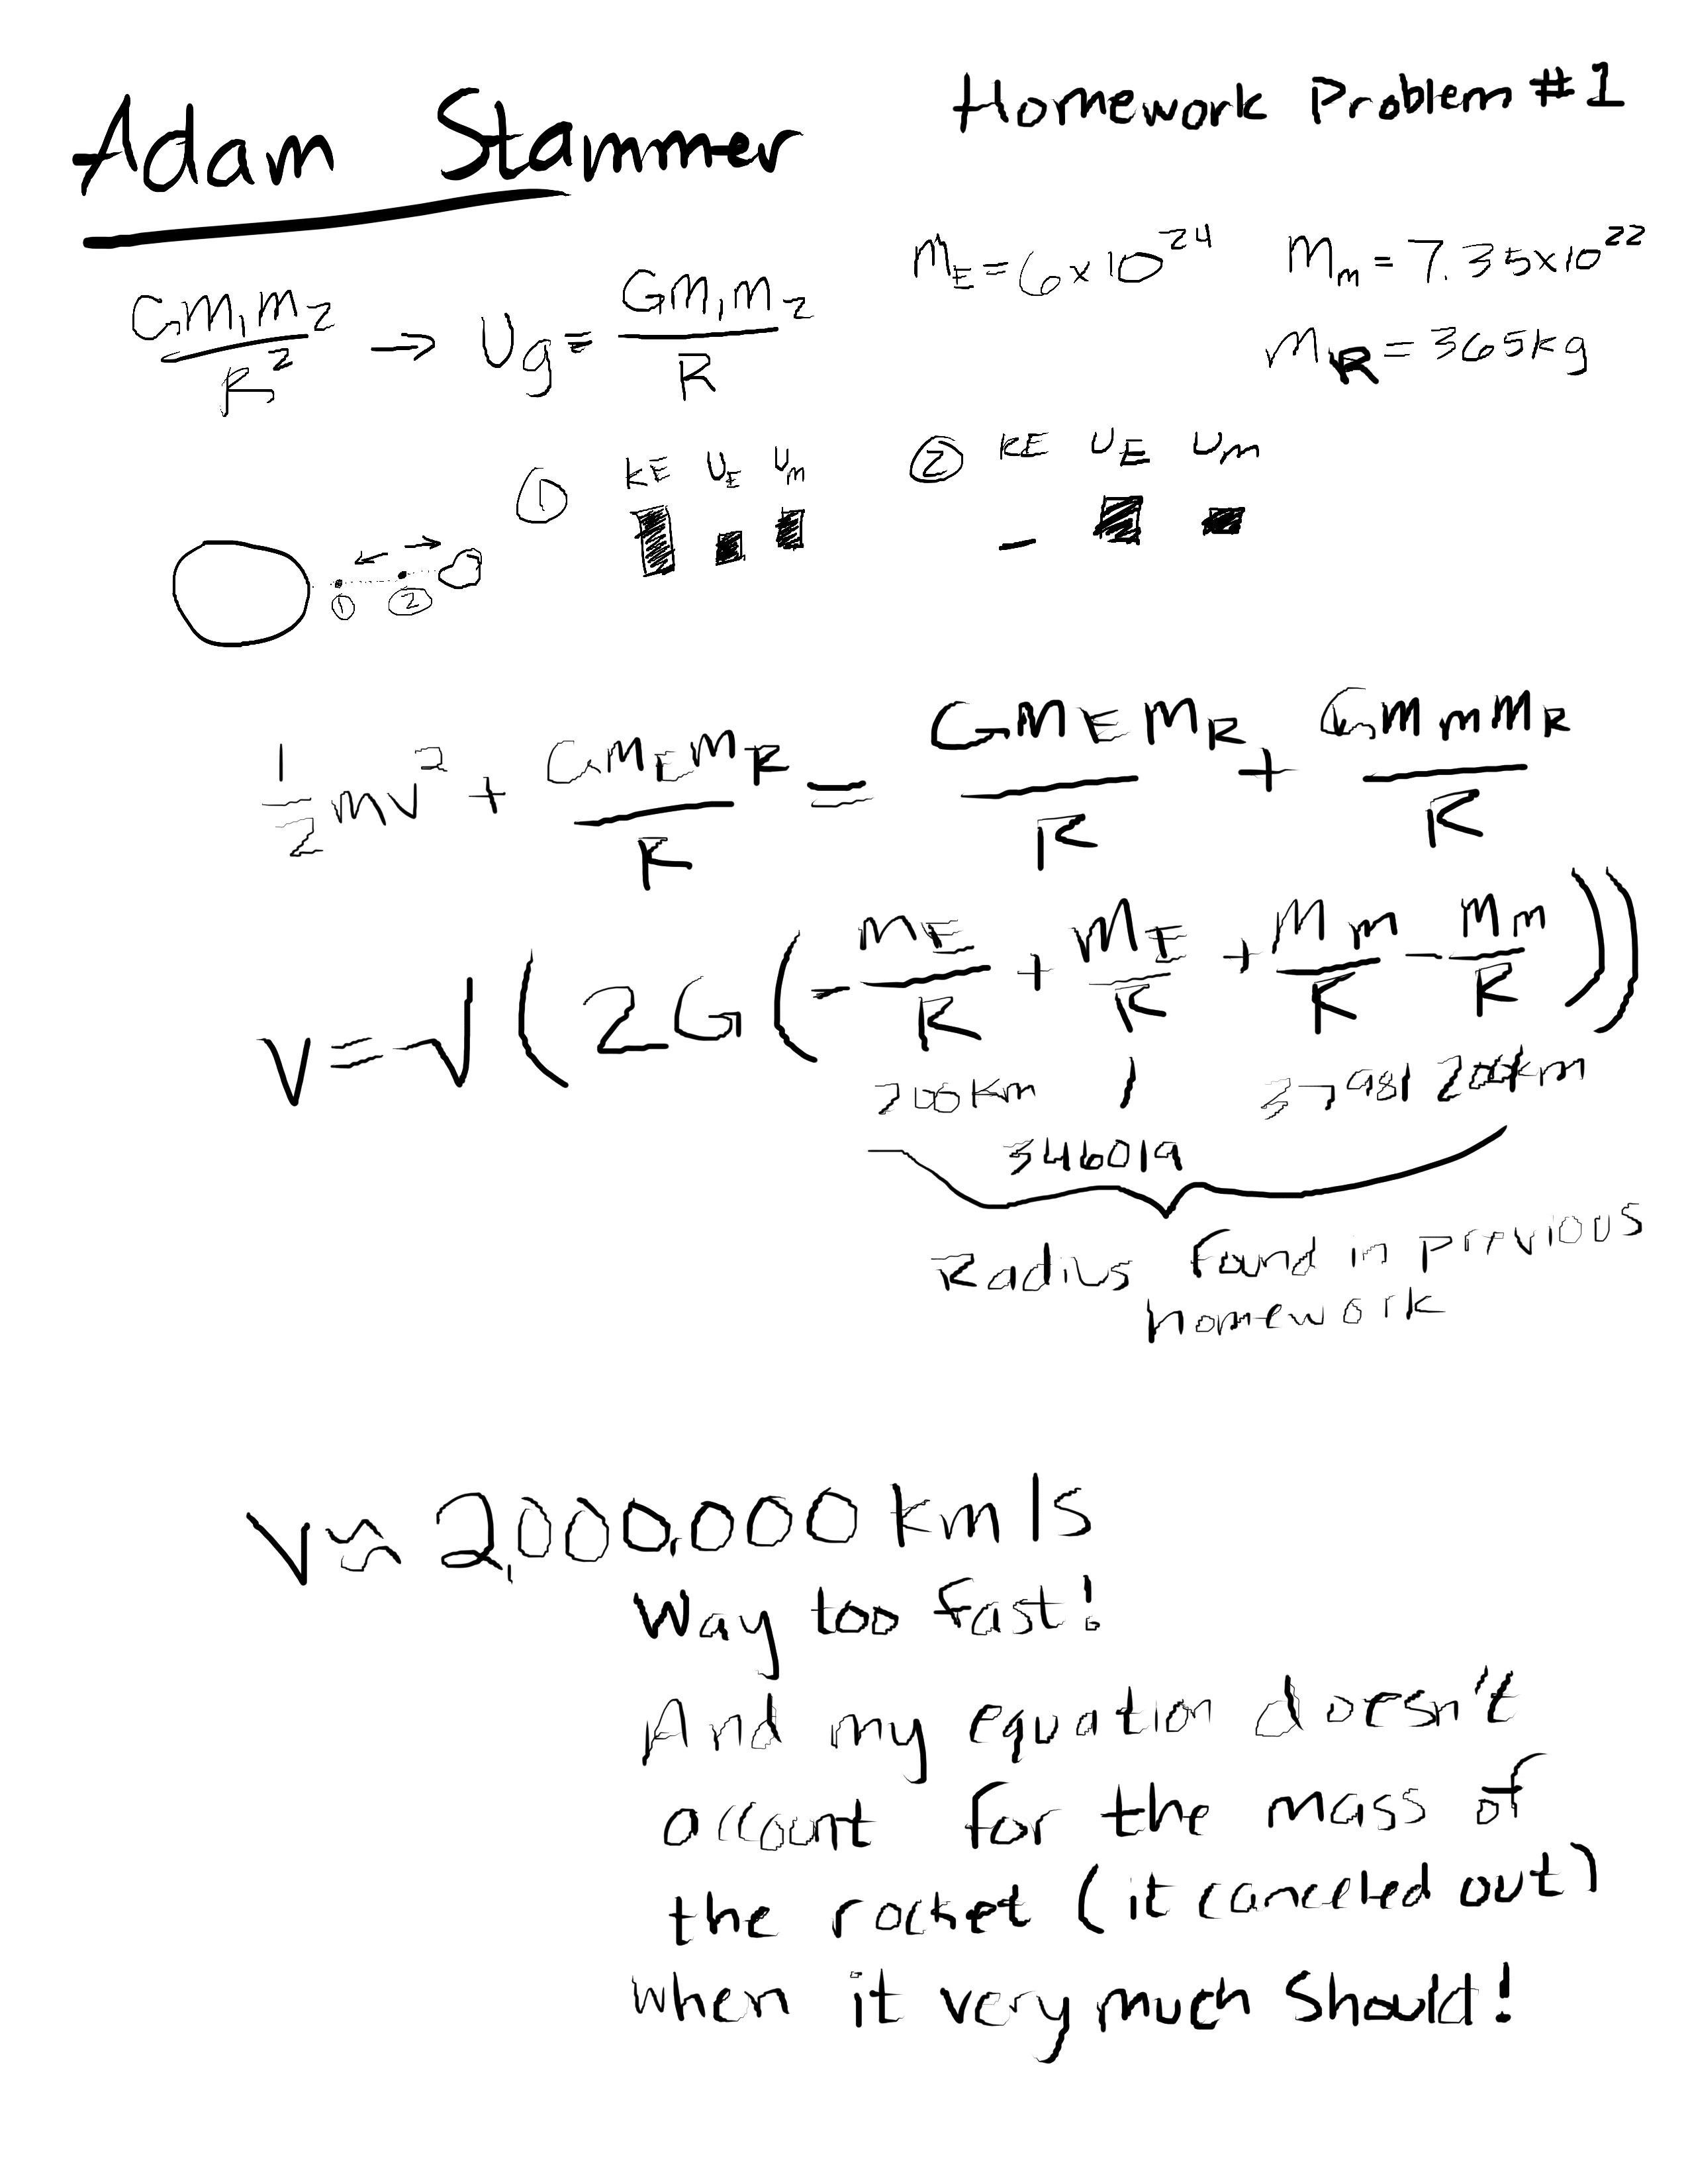 Adam Stammer
Homework Problem #1
m_E = 6×10^24   m_m = 7.35×10^22
Gm_1m_2/R^2 → Ug = Gm_1m_2/R
m_R = 365kg
① KE U_E U_m
② KE U_E U_m
① ②
1/2 mv^2 + Gm_Em_R/R = Gm_Em_R/R + Gm_mm_R/R
V = √(2G(-m_E/R + m_E/R + m_m/R - m_m/R))
200km
346019
Radius found in previous
homework
V ≈ 2,000,000 km/s
Way too fast!
And my equation doesn't
account for the mass of
the rocket (it canceled out)
when it very much should!